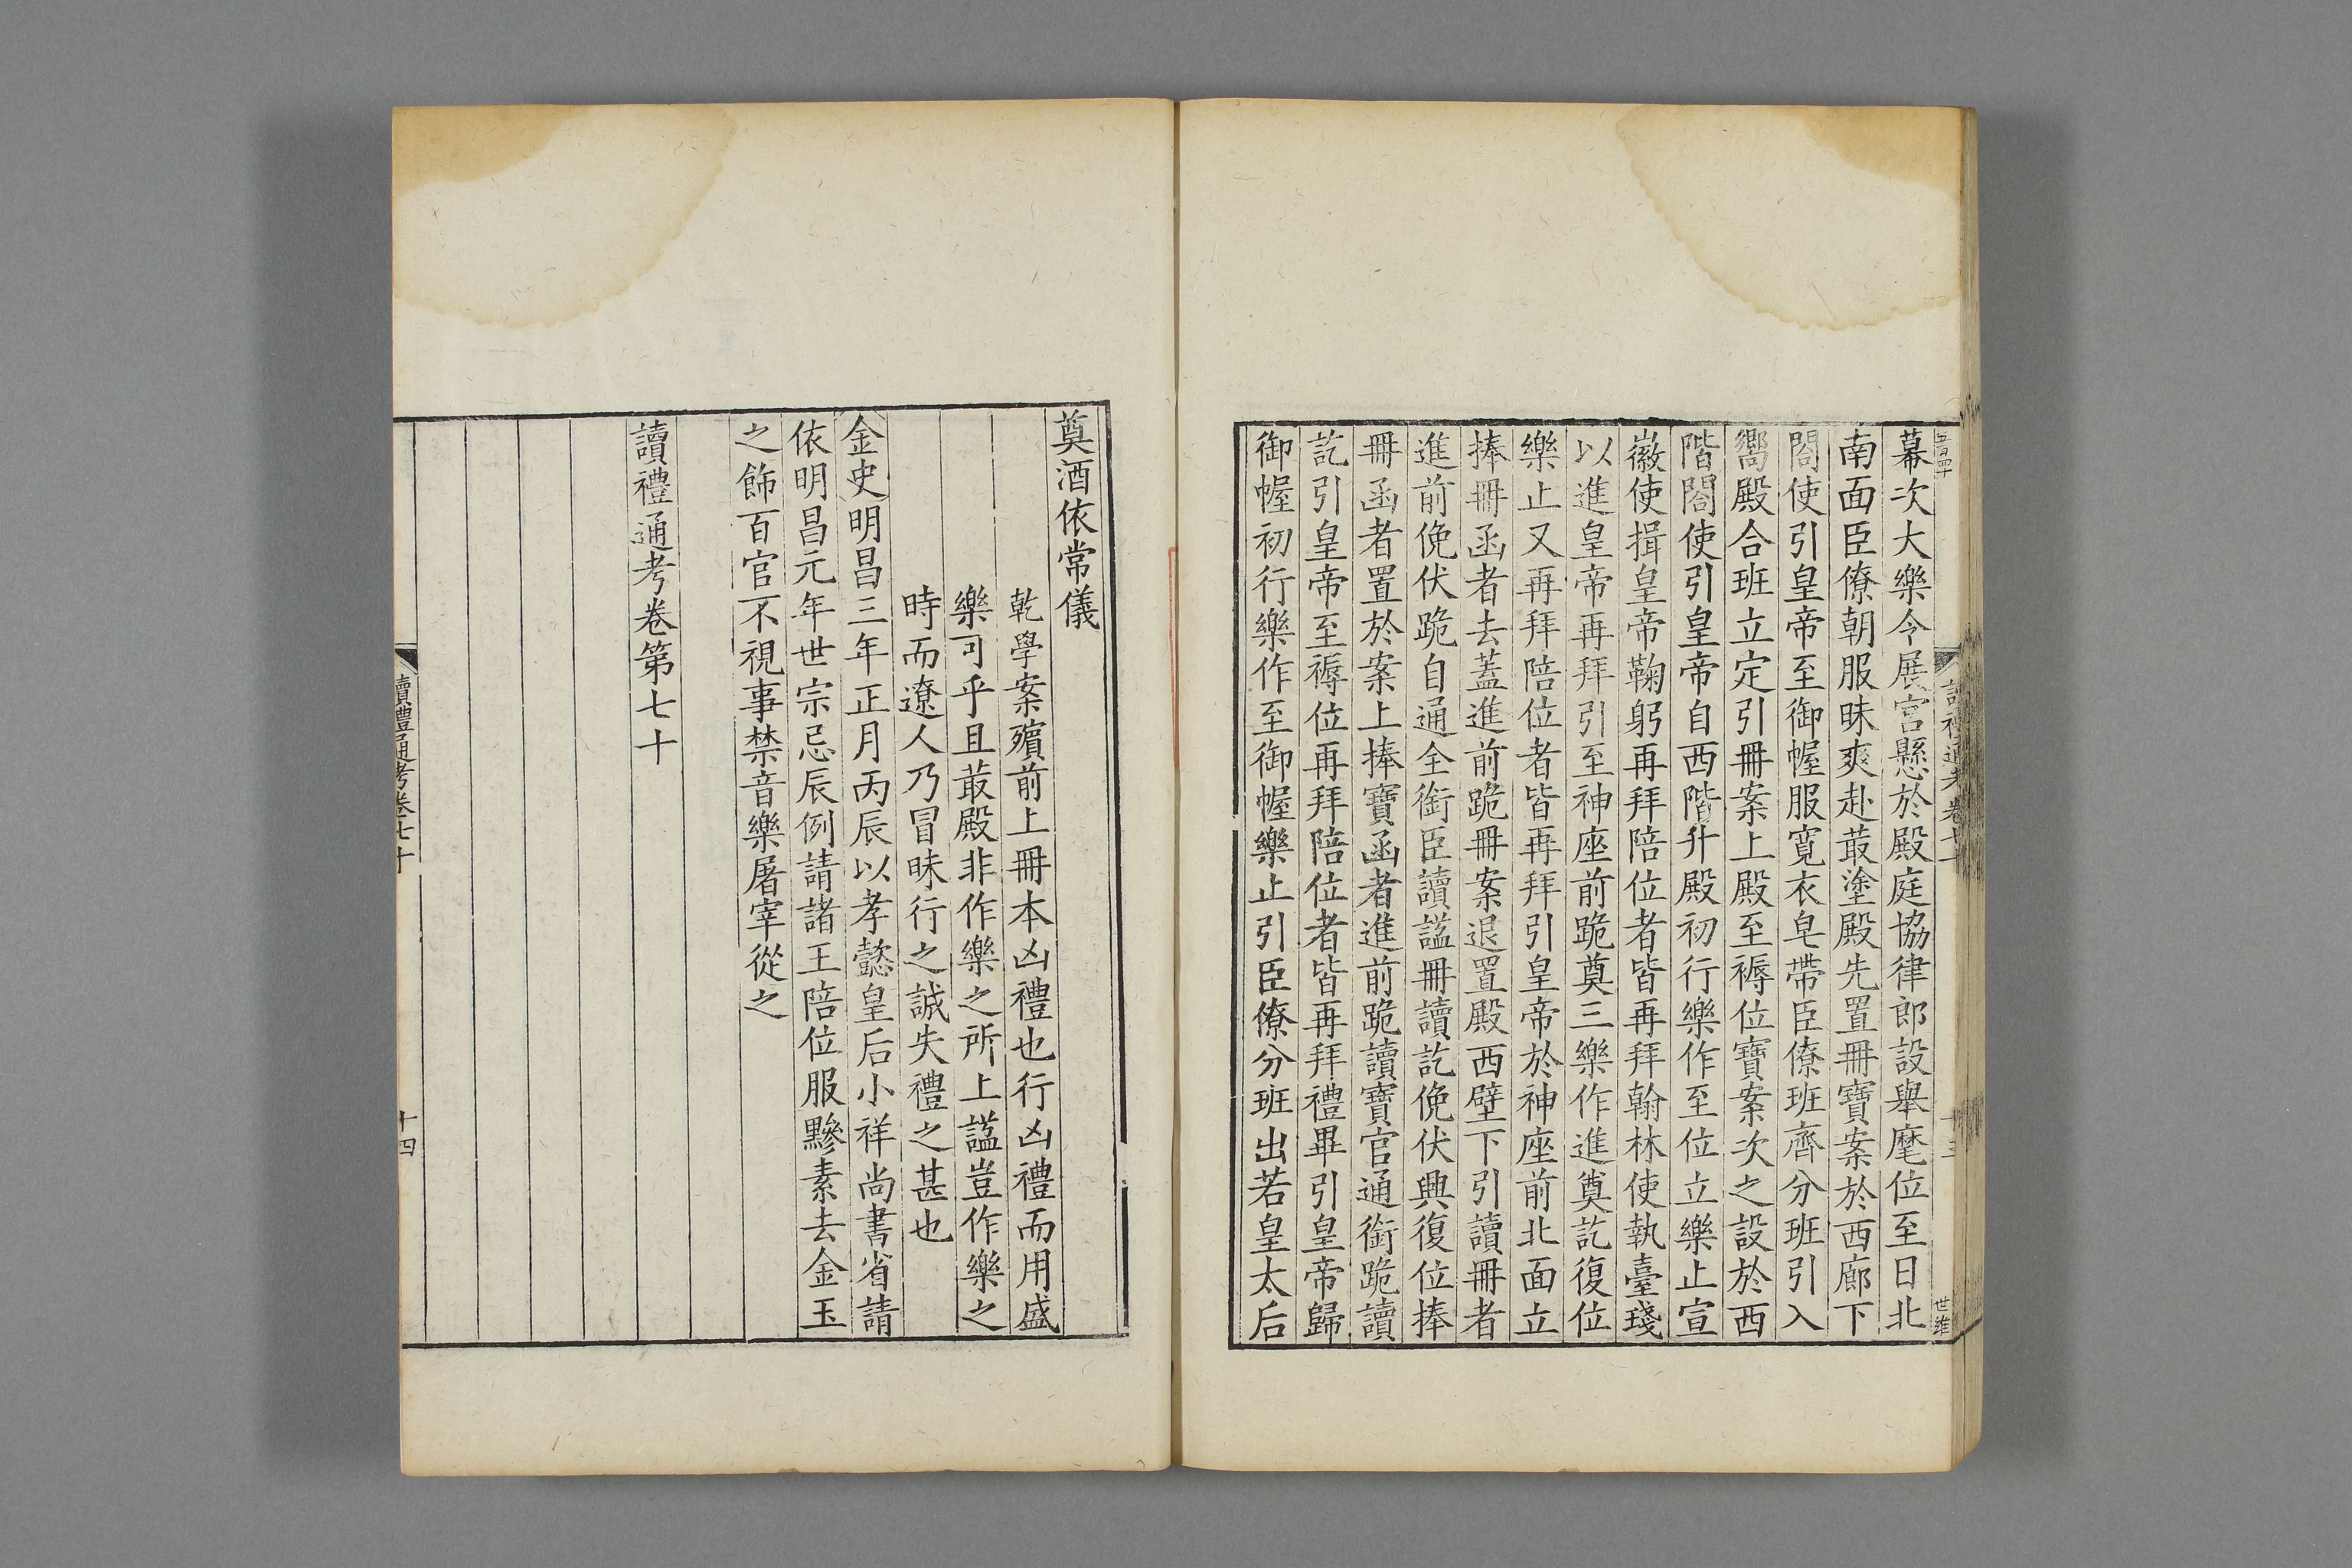 幕次大樂令展宮懸於殿庭協律郎設舉麾位至日北
南面臣僚朝服昧爽赴菆塗殿先置冊寶案於西廊下
閤使引皇帝至御幄服寬衣皂帶臣僚班齊分班引入
嚮殿合班立定引冊案上殿至褥位寶案次之設於西
階閤使引皇帝自西階升殿初行樂作至位立樂止宣
徽使揖皇帝鞠躬再拜陪位者皆再拜翰林使執臺琖
以進皇帝再拜引至神座前跪奠三樂作進奠訖復位
樂止又再拜陪位者皆再拜引皇帝於神座前北面立
捧冊函者去蓋進前跪冊案退置殿西壁下引讀冊者
進前俛伏跪自通全銜臣讀諡冊讀訖俛伏興復位捧
冊函者置於案上捧寶函者進前跪讀寶官通銜跪讀
訖引皇帝至褥位再拜陪位者皆再拜禮畢引皇帝歸
御幄初行樂作至御幄樂止引臣僚分班出若皇太后
世維
奠酒依常儀
乾學案殯前上冊本凶禮也行凶禮而用盛
樂可乎且菆殿非作樂之所上諡豈作樂之
時而遼人乃冒昧行之誠失禮之甚也
金史明昌三年正月丙辰以孝懿皇后小祥尚書省請
依明昌元年世宗忌辰例請諸王陪位服黲素去金玉
之飾百官不視事禁音樂屠宰從之
讀禮通考卷第七十
讀禮通考卷七十
十四